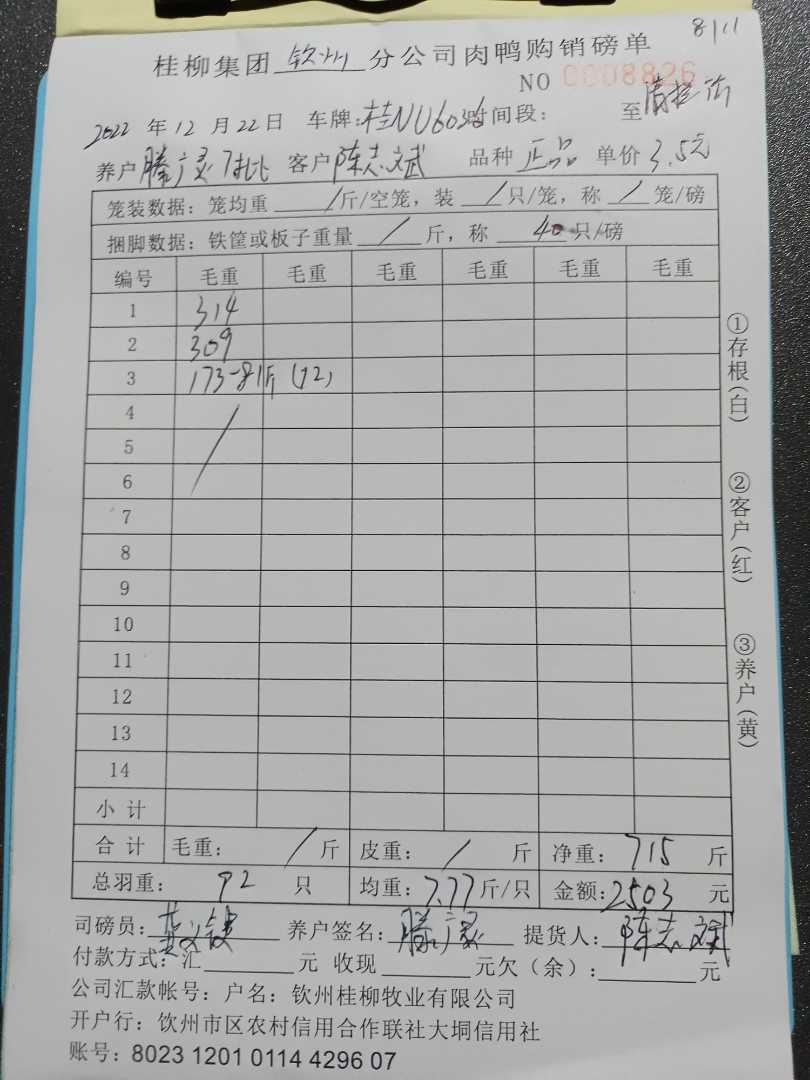 8/11
桂柳集团钦州分公司肉鸭购销磅单
NO 0008826
2022年12月22日 车牌:桂NU6036时间段: 至
养户滕广灵 客户陈志斌 品种正品 单价3.5元
笼装数据:笼均重/斤/空笼,装/只/笼,称/笼/磅
捆脚数据:铁筐或板子重量/斤,称40只/磅
编号 毛重 毛重 毛重 毛重 毛重 毛重
1 314
2 309
3 173-81斤(12)
4 /
5
6
7
8
9
10
11
12
13
14
小计
合计 毛重:/斤 皮重:/斤 净重:715斤
总羽重:92只 均重:7.77斤/只 金额:2503元
司磅员: 养户签名:滕广灵 提货人:陈志斌
付款方式:汇 元 收现 元欠(余): 元
公司汇款帐号:户名:钦州桂柳牧业有限公司
开户行:钦州市区农村信用合作联社大垌信用社
账号:8023 1201 0114 4296 07
①存根(白)
②客户(红)
③养户(黄)